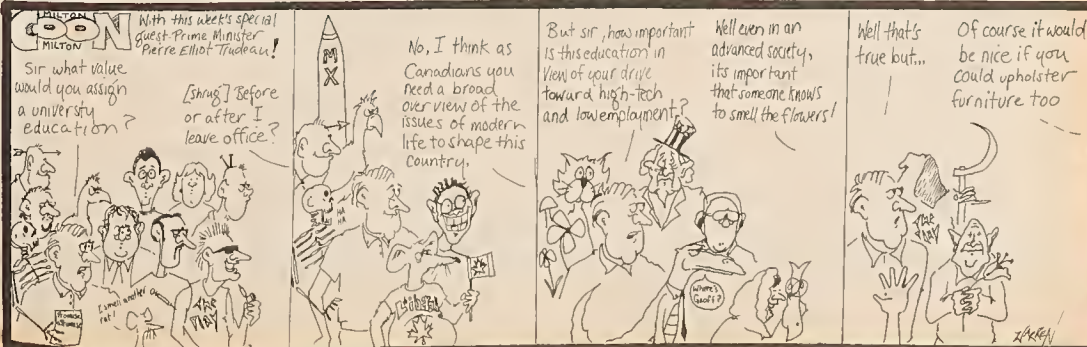 MILTON
COON
MILTON
With this week's special
guest Prime Minister
Pierre Elliot Trudeau!
Sir what value
would you assign
a university
education?
[shrug] Before
or after I
leave office?
I smell another
rat!
THE
PLAY
MX
No, I think as
Canadians you
need a broad
over view of the
issues of modern
life to shape this
country.
HA
HA
Liberal
But sir, how important
is this education in
view of your drive
toward high-tech
and low employment?
Well even in an
advanced society,
its important
that someone knows
to smell the flowers!
Where's
Geoff?
Well that's
true but...
Of course it would
be nice if you
could upholster
furniture too
THE
PLAY
WARREN